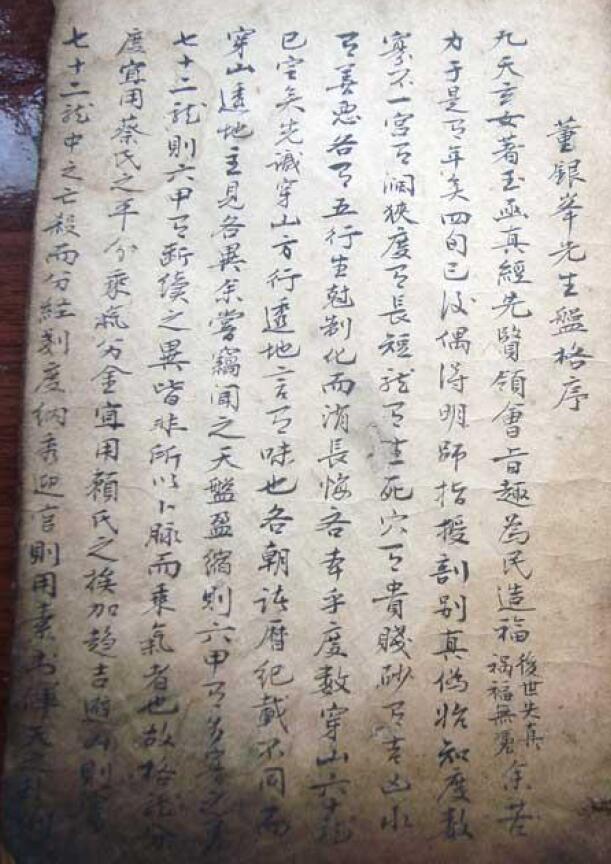 董銀峯先生盤格序
九天玄女著玉函真經先賢領會旨趣為民造福後世失真禍福無憑余苦
力于是有年矣四旬已后偶得明師指授剖別真偽始知度数
寔不一宮有濶狹度有長短龍有生死穴有貴賤砂有吉凶水
有善惡各有五行生尅制化而消長悔吝本乎度数穿山六十龍
已定矣先識穿山方行透地言有味也各朝諸曆纪載不同而
穿山透地主見各異余嘗竊聞之天盤盈縮則六甲有多寡之
七十二龍則六甲有斷續之異皆非所以卜脉而乘氣者也故格龍分
度宜用蔡氏之平分乘氣分金宜用賴氏之挨加趋吉避凶則
七十二龍中之亡殺而分經剖度納秀迎官則用素書